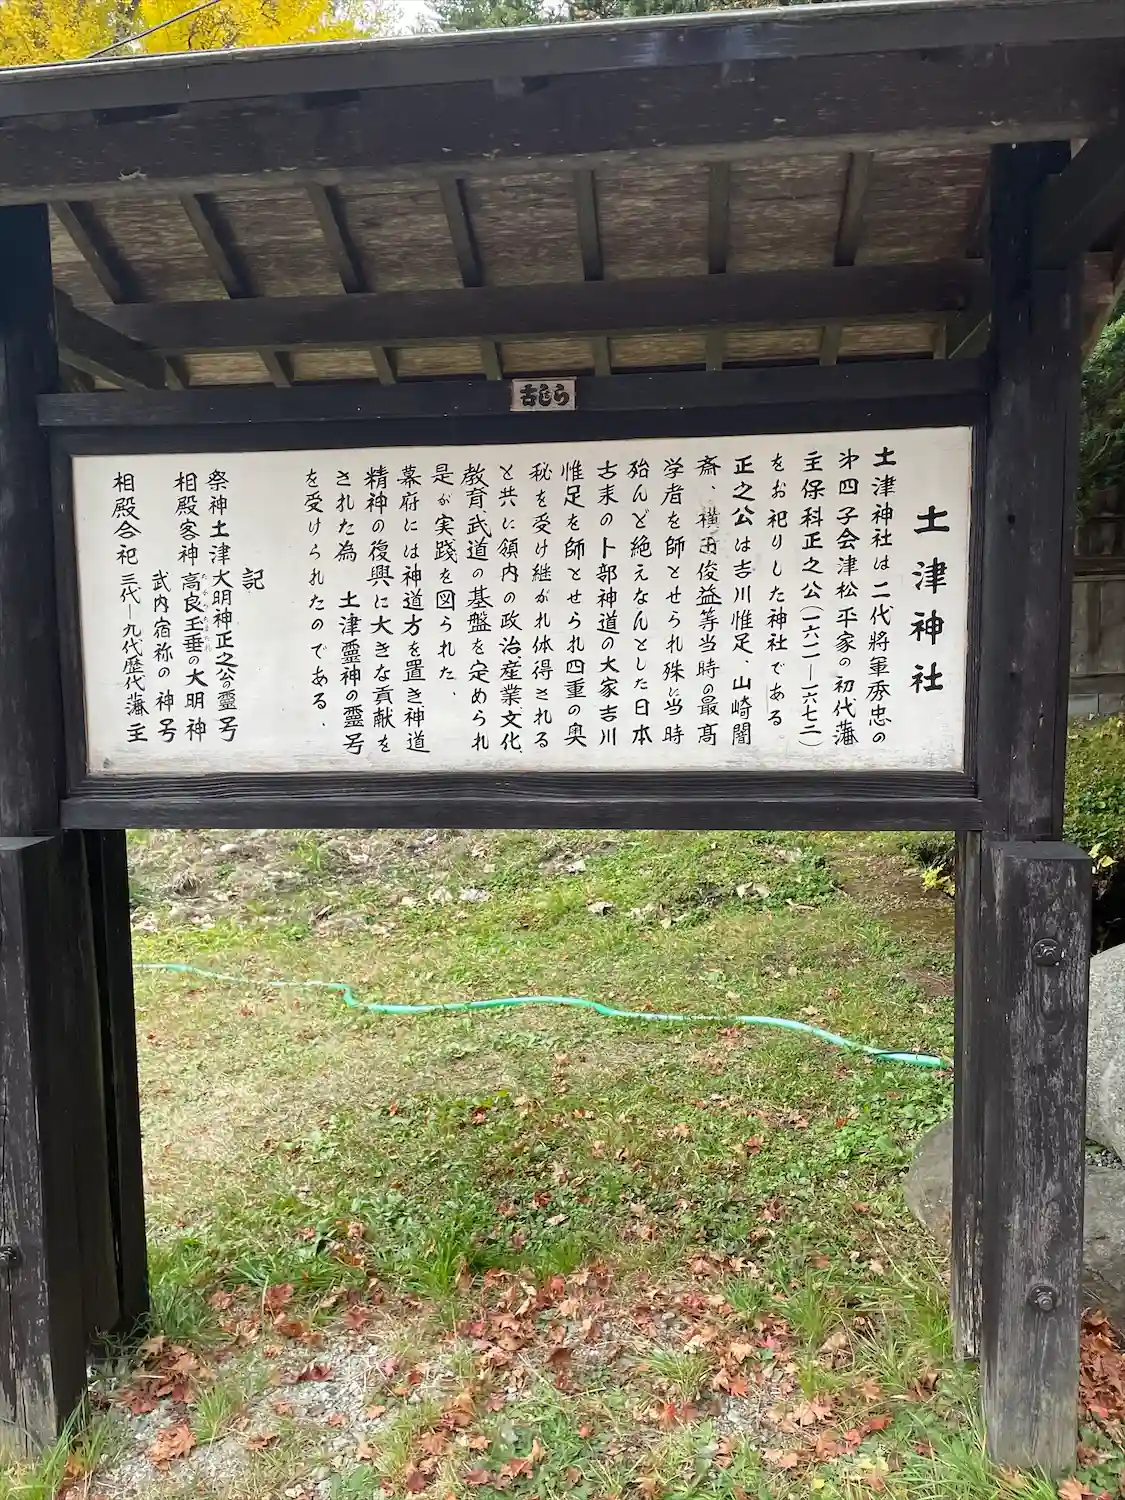 古じら
土津神社
土津神社は二代将軍秀忠の
㐧四子会津松平家の初代藩
主保科正之公(一六一一―一六七二)
をお祀りした神社である
正之公は吉川惟足、山崎闇
斎、横田俊益等当時の最髙
学者を師とせられ殊に当時
殆んど絶えなんとした日本
古来の卜部神道の大家吉川
惟足を師とせられ四重の奥
秘を受け継がれ体得される
と共に領内の政治産業、文化、
教育武道の基盤を定められ
是が実践を図られた、
幕府には神道方を置き神道
精神の復興に大きな貢献を
された為 土津霊神の霊号
を受けられたのである、
記
祭神土津大明神正之公の霊号
相殿客神 高良玉垂の大明神
武内宿祢の神号
相殿合祀 三代―九代歴代藩主